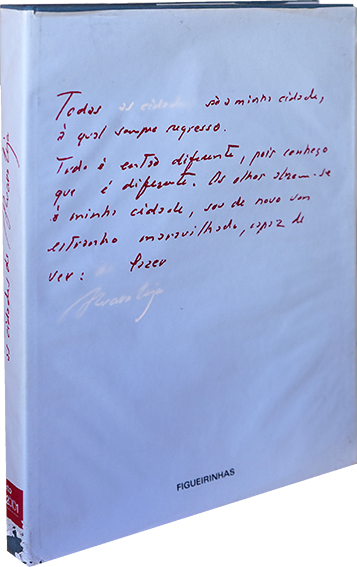 Todas as cidades são a minha cidade,
à qual sempre regresso.
Tudo é então diferente, pois conheço
que é diferente. Os olhos abrem-se
à minha cidade, sou de novo um
estranho maravilhado, capaz de
ver: fazer
Alvaro Siza
FIGUEIRINHAS
as cidades de Alvaro Siza